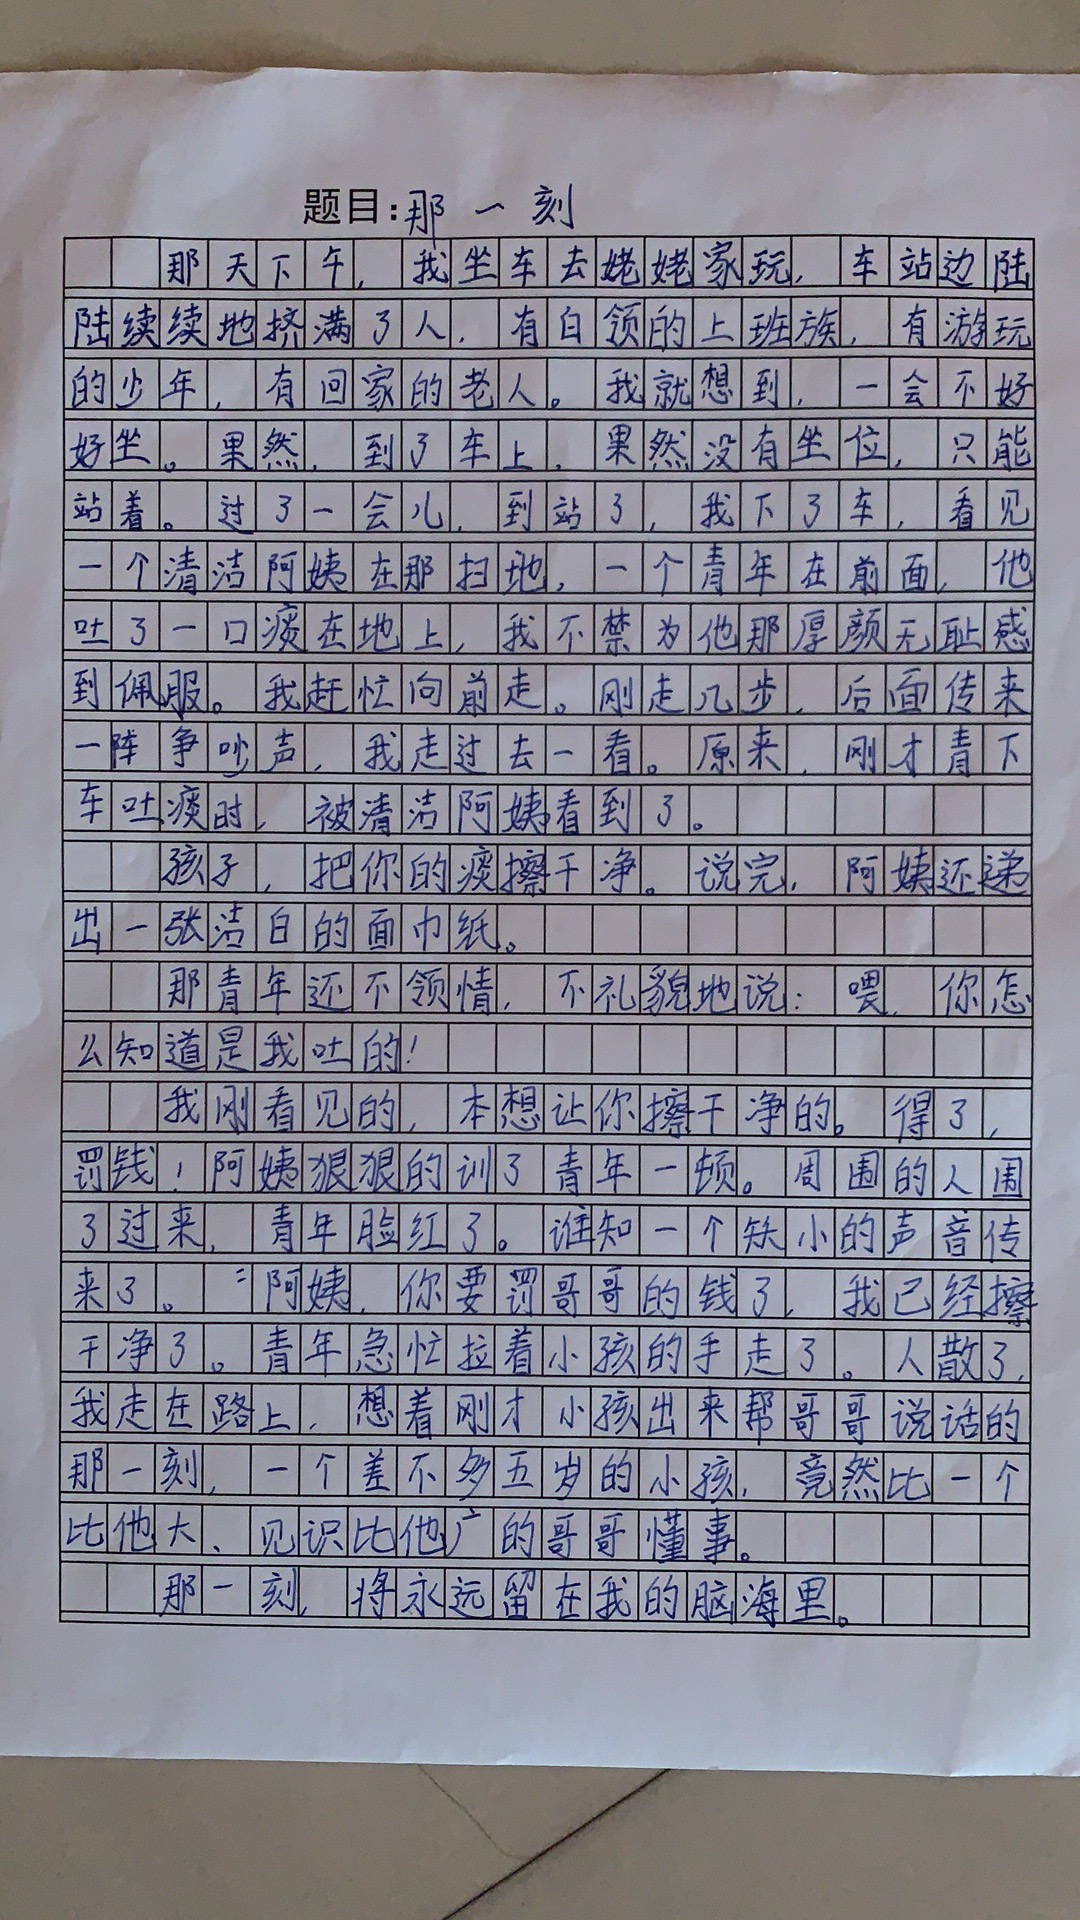 题目:那一刻
那天下午，我坐车去姥姥家玩，车站边陆
陆续续地挤满了人，有白领的上班族，有游玩
的少年，有回家的老人。我就想到，一会不好
好坐。果然，到了车上，果然没有坐位，只能
站着。过了一会儿，到站了，我下了车，看见
一个清洁阿姨在那扫地，一个青年在前面，他
吐了一口痰在地上，我不禁为他那厚颜无耻感
到佩服。我赶忙向前走。刚走几步，后面传来
一阵争吵声，我走过去一看。原来，刚才青下
车吐痰时，被清洁阿姨看到了。
孩子，把你的痰擦干净。说完，阿姨还递
出一张洁白的面巾纸。
那青年还不领情，不礼貌地说：喂，你怎
么知道是我吐的！
我刚看见的，本想让你擦干净的。得了，
罚钱！阿姨狠狠的训了青年一顿。周围的人围
了过来，青年脸红了。谁知一个矢小的声音传
来了。“阿姨，你要罚哥哥的钱了，我已经擦
干净了。青年急忙拉着小孩的手走了。人散了，
我走在路上，想着刚才小孩出来帮哥哥说话的
那一刻，一个差不多五岁的小孩，竟然比一个
比他大、见识比他广的哥哥懂事。
那一刻，将永远留在我的脑海里。